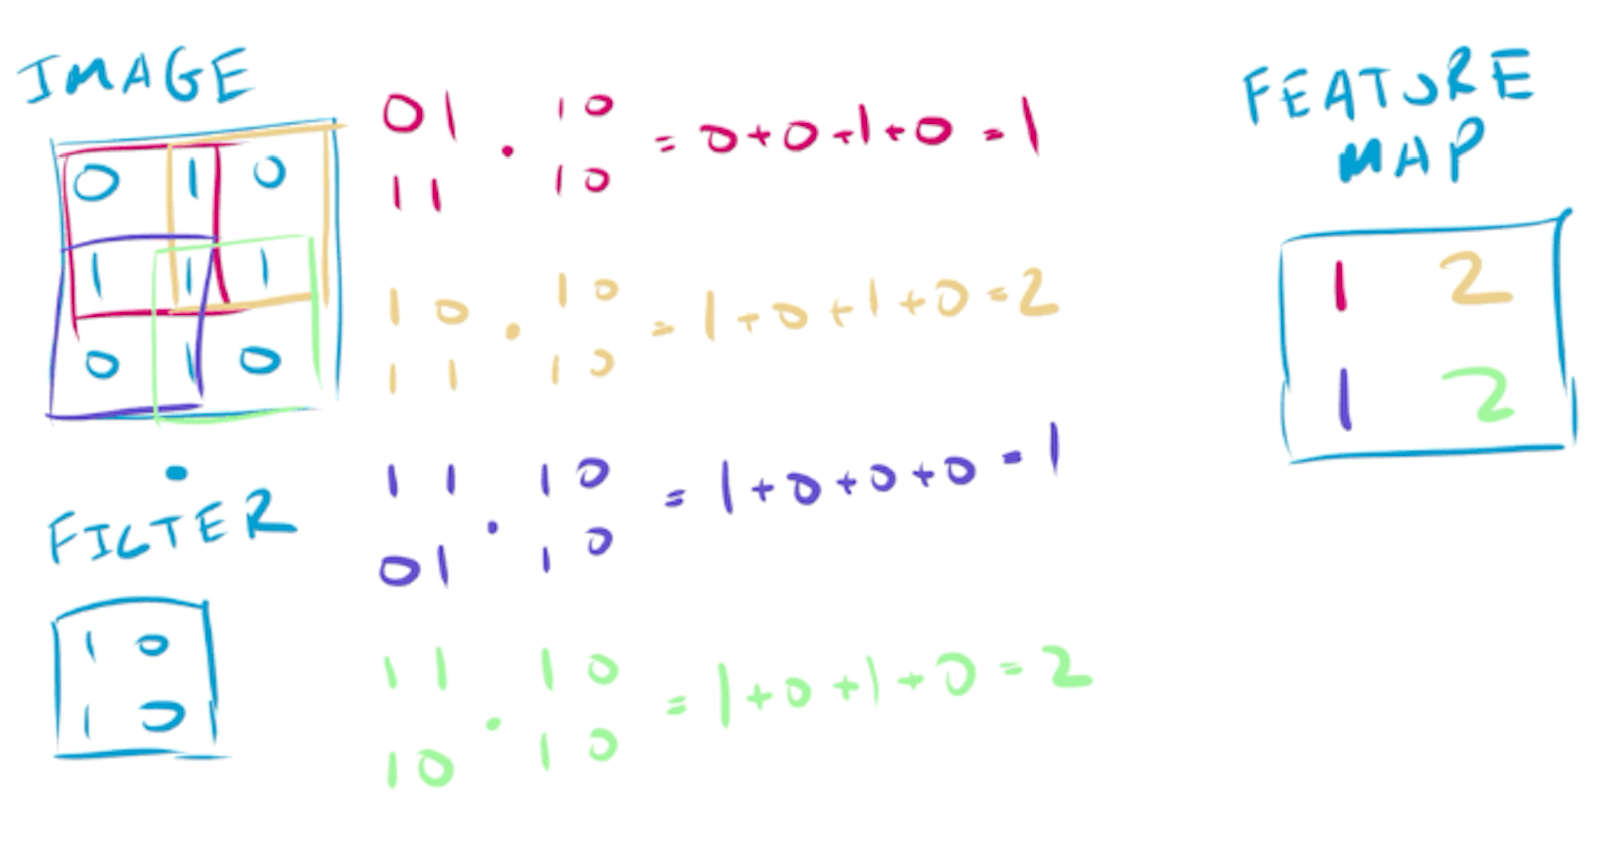 IMAGE
0 1 0
1 1 1
0 1 0
.
FILTER
1 0
1 0
01 . 10 = 0+0+1+0 = 1
11 10
10 . 10 = 1+0+1+0=2
11 10
11 . 10 = 1+0+0+0=1
01 10
11 . 10 = 1+0+1+0=2
10 10
FEATURE
MAP
1 2
1 2